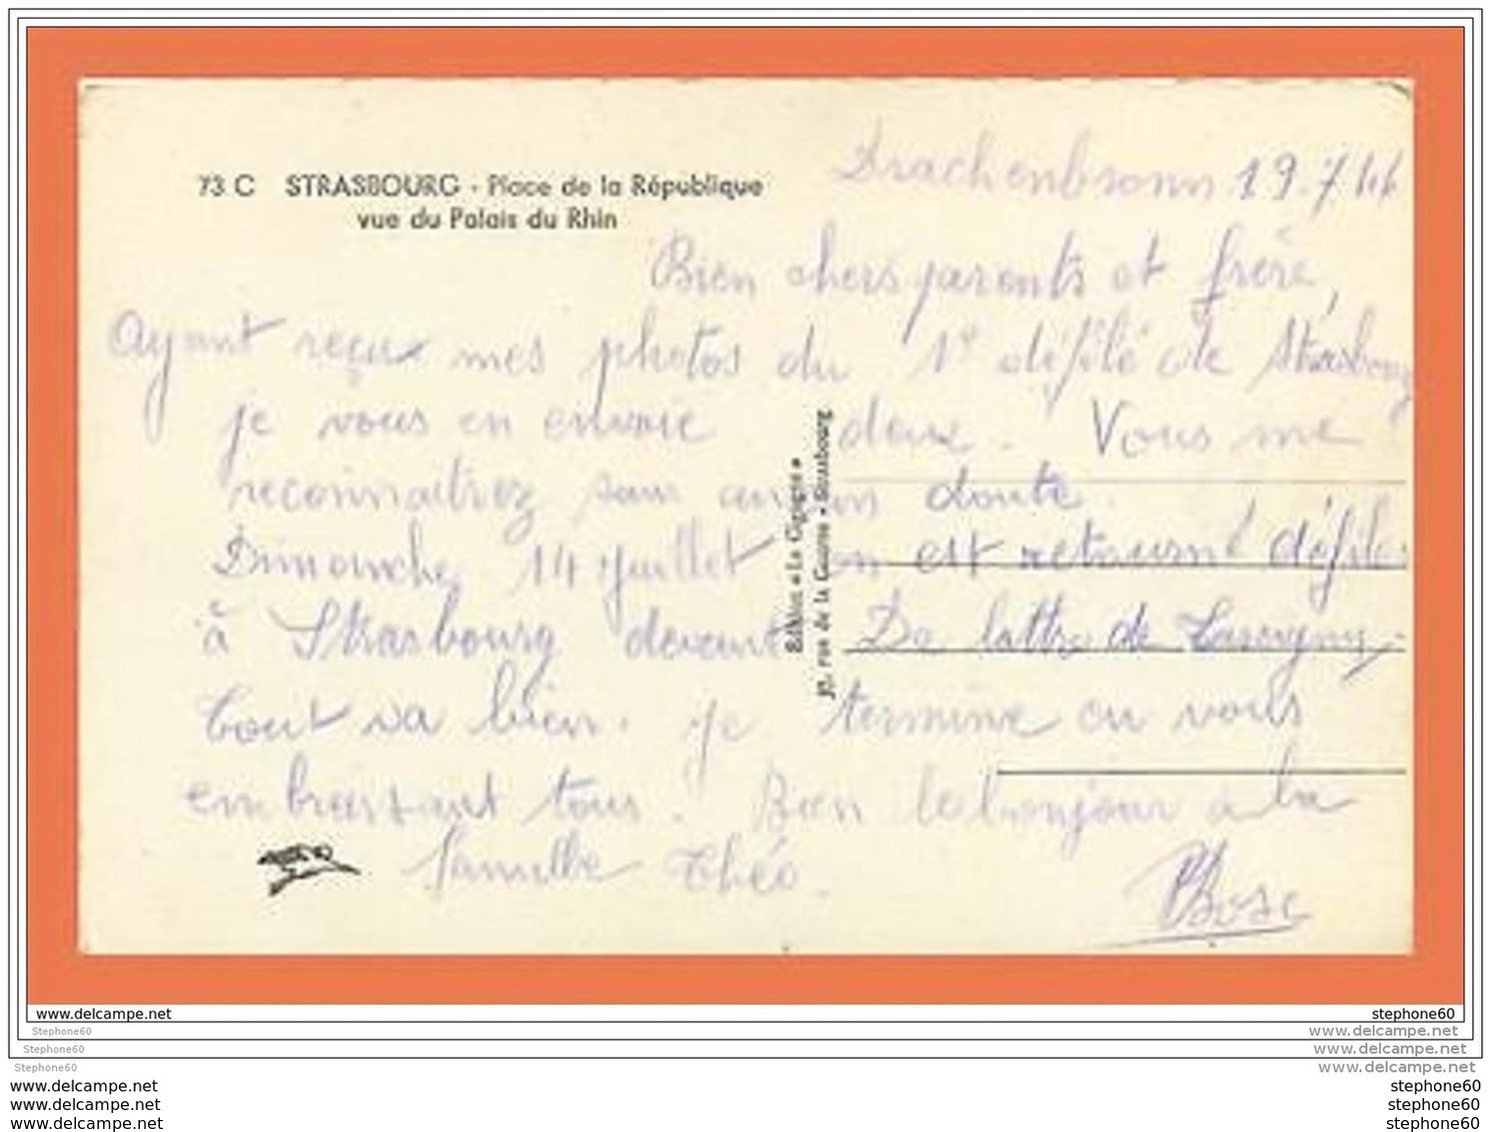 73 C STRASBOURG - Place de la République
vue du Palais du Rhin
Drachenbronn 19.7.46
Bien chers parents et frère,
Ayant reçu mes photos du 1e défilé de Strasbourg
je vous en envoie deux. Vous me
reconnaitrez sans aucun doute.
Dimanche 14 juillet on est retourné défiler
à Strasbourg devant De lattre de Tassigny.
Tout va bien. Je termine en vous
embrassant tous. Bien le bonjour à la
famille Théo.
Editions « La Cigogne »
rue de la Course - Strasbourg
www.delcampe.net
stephone60
Stephone60
www.delcampe.net
Stephone60
www.delcampe.net
Stephone60
www.delcampe.net
www.delcampe.net
stephone60
www.delcampe.net
stephone60
www.delcampe.net
stephone60